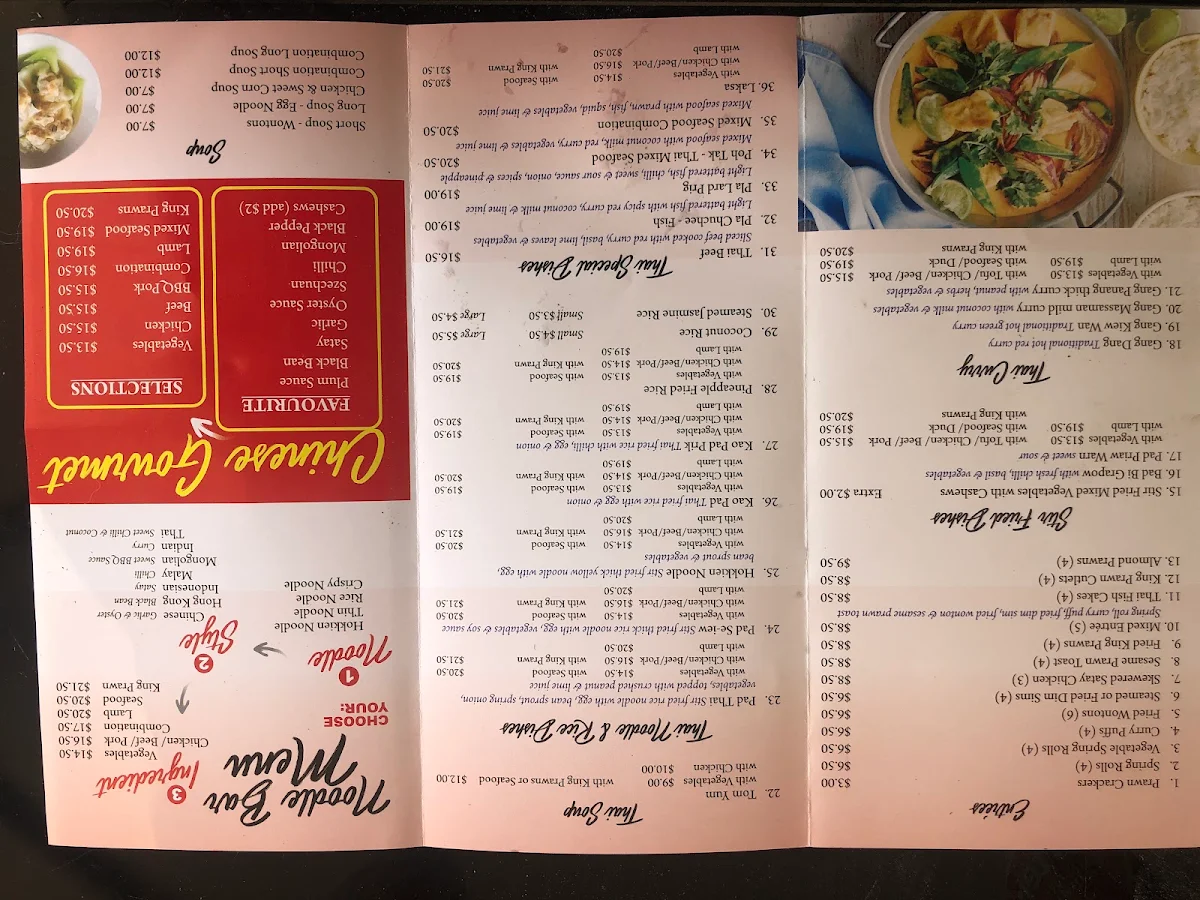 Entrées
1. Prawn Crackers $3.00
2. Spring Rolls (4) $6.50
3. Vegetable Spring Rolls (4) $6.50
4. Curry Puffs (4) $6.50
5. Fried Wontons (6) $6.50
6. Steamed or Fried Dim Sims (4) $6.50
7. Skewered Satay Chicken (3) $8.50
8. Sesame Prawn Toast (4) $8.50
9. Fried King Prawns (4) $8.50
10. Mixed Entrée (5) $8.50
Spring roll, curry puff, fried dim sim, fried wonton & sesame prawn toast
11. Thai Fish Cakes (4) $8.50
12. King Prawn Cutlets (4) $8.50
13. Almond Prawns (4) $9.50
Stir Fried Dishes
15. Stir Fried Mixed Vegetables with Cashews Extra $2.00
16. Bad Bi Grapow with fresh chilli, basil & vegetables
17. Pad Priaw Warn sweet & sour
with Vegetables $13.50 with Tofu/ Chicken/ Beef/ Pork $15.50
with Lamb $19.50 with Seafood/ Duck $19.50
with King Prawns $20.50
Thai Curry
18. Gang Dang Traditional red hot curry
19. Gang Kiew Wan Traditional hot green curry
20. Gang Massaman mild curry with coconut milk & vegetables
21. Gang Panang thick curry with peanut, herbs & vegetables
with Vegetables $13.50 with Tofu/ Chicken/ Beef/ Pork $15.50
with Lamb $19.50 with Seafood/ Duck $19.50
with King Prawns $20.50
Thai Soup
22. Tom Yum
with Vegetables $9.00 with King Prawns or Seafood $12.00
with Chicken $10.00
Thai Noodle & Rice Dishes
23. Thai Pad Stir fried rice noodle with egg, bean sprout, spring onion,
vegetables, topped with crushed peanut & lime juice
with Vegetables $14.50 with Seafood $20.50
with Chicken/Beef/Pork $16.50 with King Prawn $21.50
with Lamb $20.50
24. Pad Se-Iew Stir fried thick rice noodle with egg, vegetables & soy sauce
with Vegetables $14.50 with Seafood $20.50
with Chicken/Beef/Pork $16.50 with King Prawn $21.50
with Lamb $20.50
25. Hokkien Noodle Stir fried thick yellow noodle with egg,
bean sprout & vegetables
with Vegetables $14.50 with Seafood $20.50
with Chicken/Beef/Pork $16.50 with King Prawn $21.50
with Lamb $20.50
26. Kao Pad Thai fried rice with egg & onion
with Vegetables $13.50 with Seafood $19.50
with Chicken/Beef/Pork $14.50 with King Prawn $20.50
with Lamb $19.50
27. Kao Pad Prik Thai fried rice with chilli, egg & onion
with Vegetables $13.50 with Seafood $19.50
with Chicken/Beef/Pork $14.50 with King Prawn $20.50
with Lamb $19.50
28. Pineapple Fried Rice
with Vegetables $13.50 with Seafood $19.50
with Chicken/Beef/Pork $14.50 with King Prawn $20.50
with Lamb $19.50
29. Coconut Rice Small $4.50 Large $5.50
30. Steamed Jasmine Rice Small $3.50 Large $4.50
Thai Special Dishes
31. Thai Beef $16.50
Sliced beef cooked with red curry, basil, lime leaves & vegetables
32. Pla Chuchee - Fish $19.00
Light battered fish with spicy red curry, coconut milk & lime juice
33. Pla Lard Prig $19.00
Light battered fish, chilli, sweet & sour sauce, onion, spices & pineapple
34. Poh - Tak - Thai Mixed Seafood $20.50
Mixed seafood with coconut milk, red curry, vegetables & lime juice
35. Mixed Seafood Combination $20.50
Mixed seafood with prawn, fish, squid, vegetables & lime juice
36. Laksa
with Vegetables $14.50 with Seafood $20.50
with Chicken/Beef/Pork $16.50 with King Prawn $21.50
with Lamb $20.50
Noodle Bar
Menu
CHOOSE
YOUR:
1 Noodle
Hokkien Noodle
Thin Noodle
Rice Noodle
Crispy Noodle
2 Style
Chinese Garlic & Oyster
Hong Kong Black Bean
Indonesian Satay
Malay Chilli
Mongolian Sweet BBQ Sauce
Indian Curry
Thai Sweet Chilli & Coconut
3 Ingredient
Vegetables $14.50
Chicken/ Beef/ Pork $16.50
Combination $17.50
Lamb $20.50
Seafood $20.50
King Prawn $21.50
Chinese Gourmet
FAVOURITE
Plum Sauce
Black Bean
Satay
Garlic
Oyster Sauce
Szechuan
Chilli
Mongolian
Black Pepper
Cashews (add $2)
SELECTIONS
Vegetables $13.50
Chicken $15.50
Beef $15.50
BBQ Pork $15.50
Combination $16.50
Lamb $19.50
Mixed Seafood $19.50
King Prawns $20.50
Soup
Short Soup - Wontons $7.00
Long Soup - Egg Noodle $7.00
Chicken & Sweet Corn Soup $7.00
Combination Short Soup $12.00
Combination Long Soup $12.00